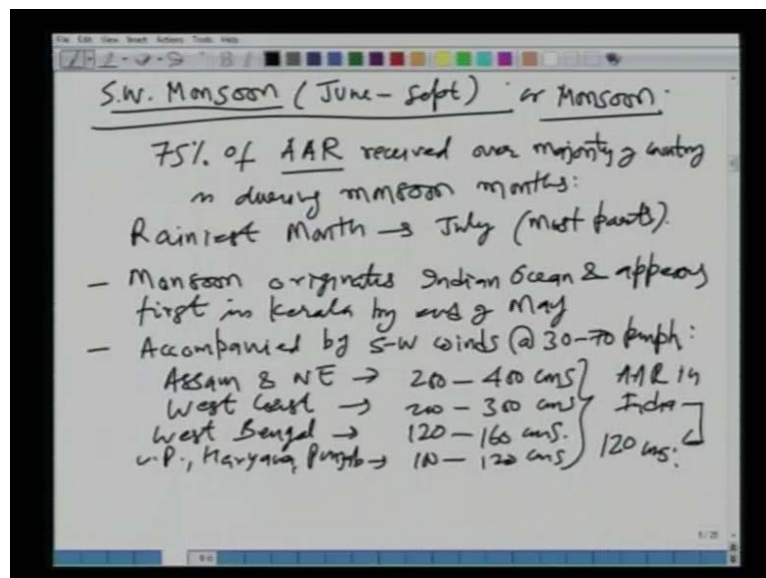 File Edit View Insert Actions Tools Help
S.W. Monsoon (June - Sept) or Monsoon.
75% of AAR received over majority of country
is during monsoon months:
Rainiest Month → July (most parts).
- Monsoon originates Indian Ocean & appears
first in Kerala by end of May
- Accompanied by S-W winds @ 30-70 kmph:
Assam & NE → 200 - 400 cms } AAR in
West Coast → 200 - 300 cms India
West Bengal → 120 - 160 cms. 120 cms.
U.P., Haryana, Punjab → 100 - 120 cms